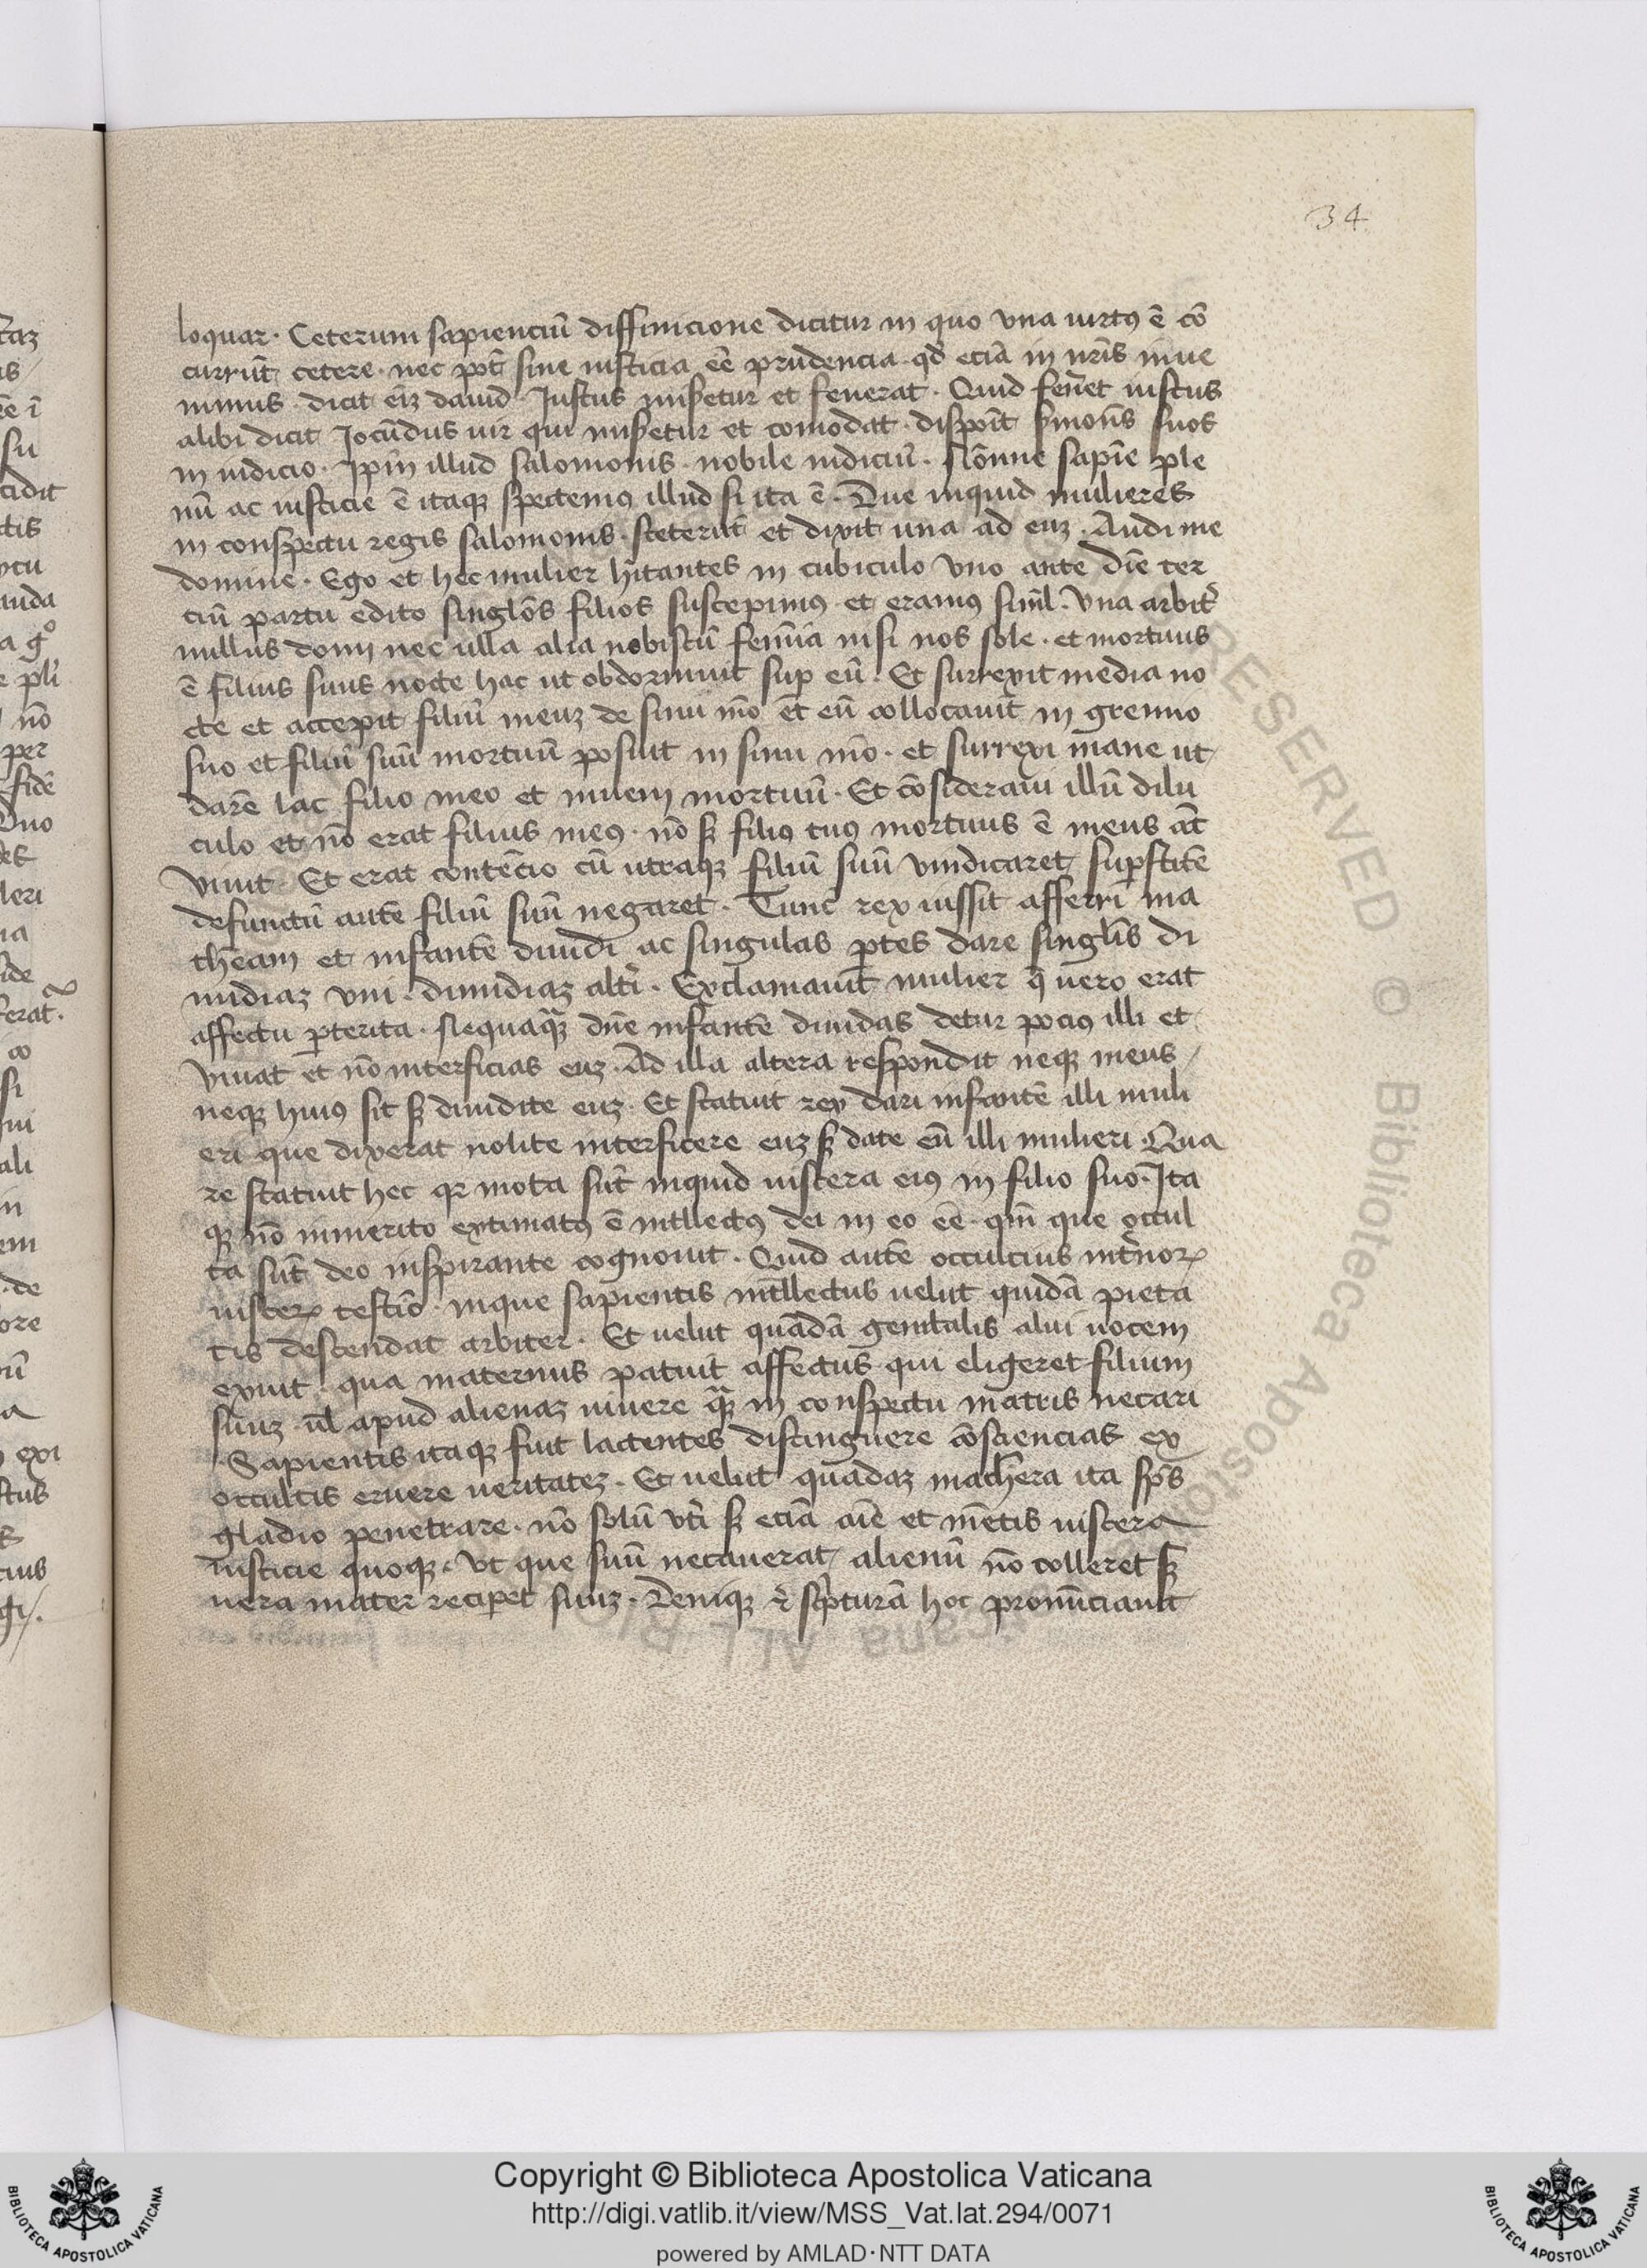 34
loquar. Ceterum sapienciū diffinicione dicitur in quo vna uirtꝰ ē cō
currūt cetere. nec pōt sine iusticia eē prudencia. qd̄ eciā in nr̄is inue
nimus. dicit eiz dauid Justus miẜetur et fenerat. Quid fen̄et iustus
alibi dicit Jocūdus uir qui miẜetur et comodat. dispoīt ẜmon̄s suos
in iudicio. Ip̄m illud salomonis. nobile iudiciū. Nōnne sapīe ple
nū ac iusticie ē itaqꝫ spectemꝰ illud si ita ē. Due inquid mulieres
in conspectu regis salomonis. steterūt et dixit una ad euꝫ. Audi me
domine. Ego et hec mulier hītantes in cubiculo vno ante diē ter
ciū partu edito singlōs filios suscepimꝰ et eramꝰ siml̄. Vna arbit̉
nullus domi nec ulla alia nobiscū femīa nisi nos sole. et mortuus
ē filius suus nocte hac ut obdormiuit suꝑ eū. Et surrexit media no
cte et accepit filiū meuꝫ de sinu mō et eū collocauit in gremio
suo et filiū suū mortuū posuit in sinu mō. et surrexi mane ut
darē lac filio meo et inueni mortuū. Et cōsideraui illū dilu
culo et nō erat filius meꝰ. nō sꝫ filiꝰ tuꝰ mortuus ē meus āt
viuit. Et erat contēcio cū utraqꝫ filiū suū vindicaret suꝑstitē
defunctū autē filiū suū negaret. Tunc rex iussit afferri ma
chēam et infantē diuidi ac singulas ꝑtes dare singl̄is di
midiaꝫ vni. dimidiaꝫ alt̉i. Exclamauit mulier q̄ uero erat
affectu ꝑterita. Nequaq̄ꝫ dn̄e infantē diuidas detur pociꝰ illi et
viuat et nō interficias euꝫ. Ad illa altera respondit neqꝫ meus /
neqꝫ huiꝰ sit sꝫ diuidite euꝫ. Et statuit rex dari infantē illi muli
eri que dixerat nolite interficere euꝫ sꝫ date eū illi mulieri. Qua
re statuit hec qꝛ mota sūt inquid uiscera eiꝰ in filio suo. Ita
qꝫ nō inmerito extimatꝰ ē intllectꝰ dei in eo eē. qm̄ que occul
ta sūt deo inspirante cognouit. Quid autē occulcius int̉noꝝ
uisceꝝ testiō. inque sapientis int̄llectus uelut quidā pieta
tis descendat arbiter. Et uelut quādā genitalis alui uocem
exiuit. qua maternus patuit affectus qui eligeret filium
suuꝫ ul̄ apud alienaꝫ uiuere q̄ꝫ in conspectu matris necari
Sapientis itaqꝫ fuit lactentes distinguere cōsciencias ex
occultis eruere ueritateꝫ. Et uelut quadaꝫ machēra ita sp̄s
gladio penetrare. nō solū vt̉i sꝫ eciā aīe et mētis uiscera
iusticie quoqꝫ. Vt que suū necauerat alienū nō tolleret sꝫ
uera mater reciꝑet suuꝫ. Deniqꝫ ⁊ sc̉pturā hoc pronūciauit
Copyright © Biblioteca Apostolica Vaticana
http://digi.vatlib.it/view/MSS_Vat.lat.294/0071
powered by AMLAD·NTT DATA
BIBLIOTECA APOSTOLICA VATICANA
BIBLIOTECA APOSTOLICA VATICANA